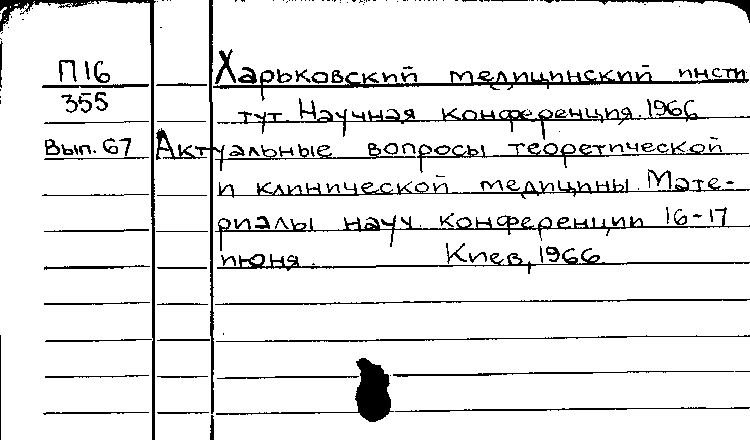 П16 Харьковский медицинский инсти
355 тут. Научная конференция. 1966
Вып. 67 Актуальные вопросы теоретической
и клинической медицины. Мате-
риалы науч. конференции 16-17
июня. Киев, 1966